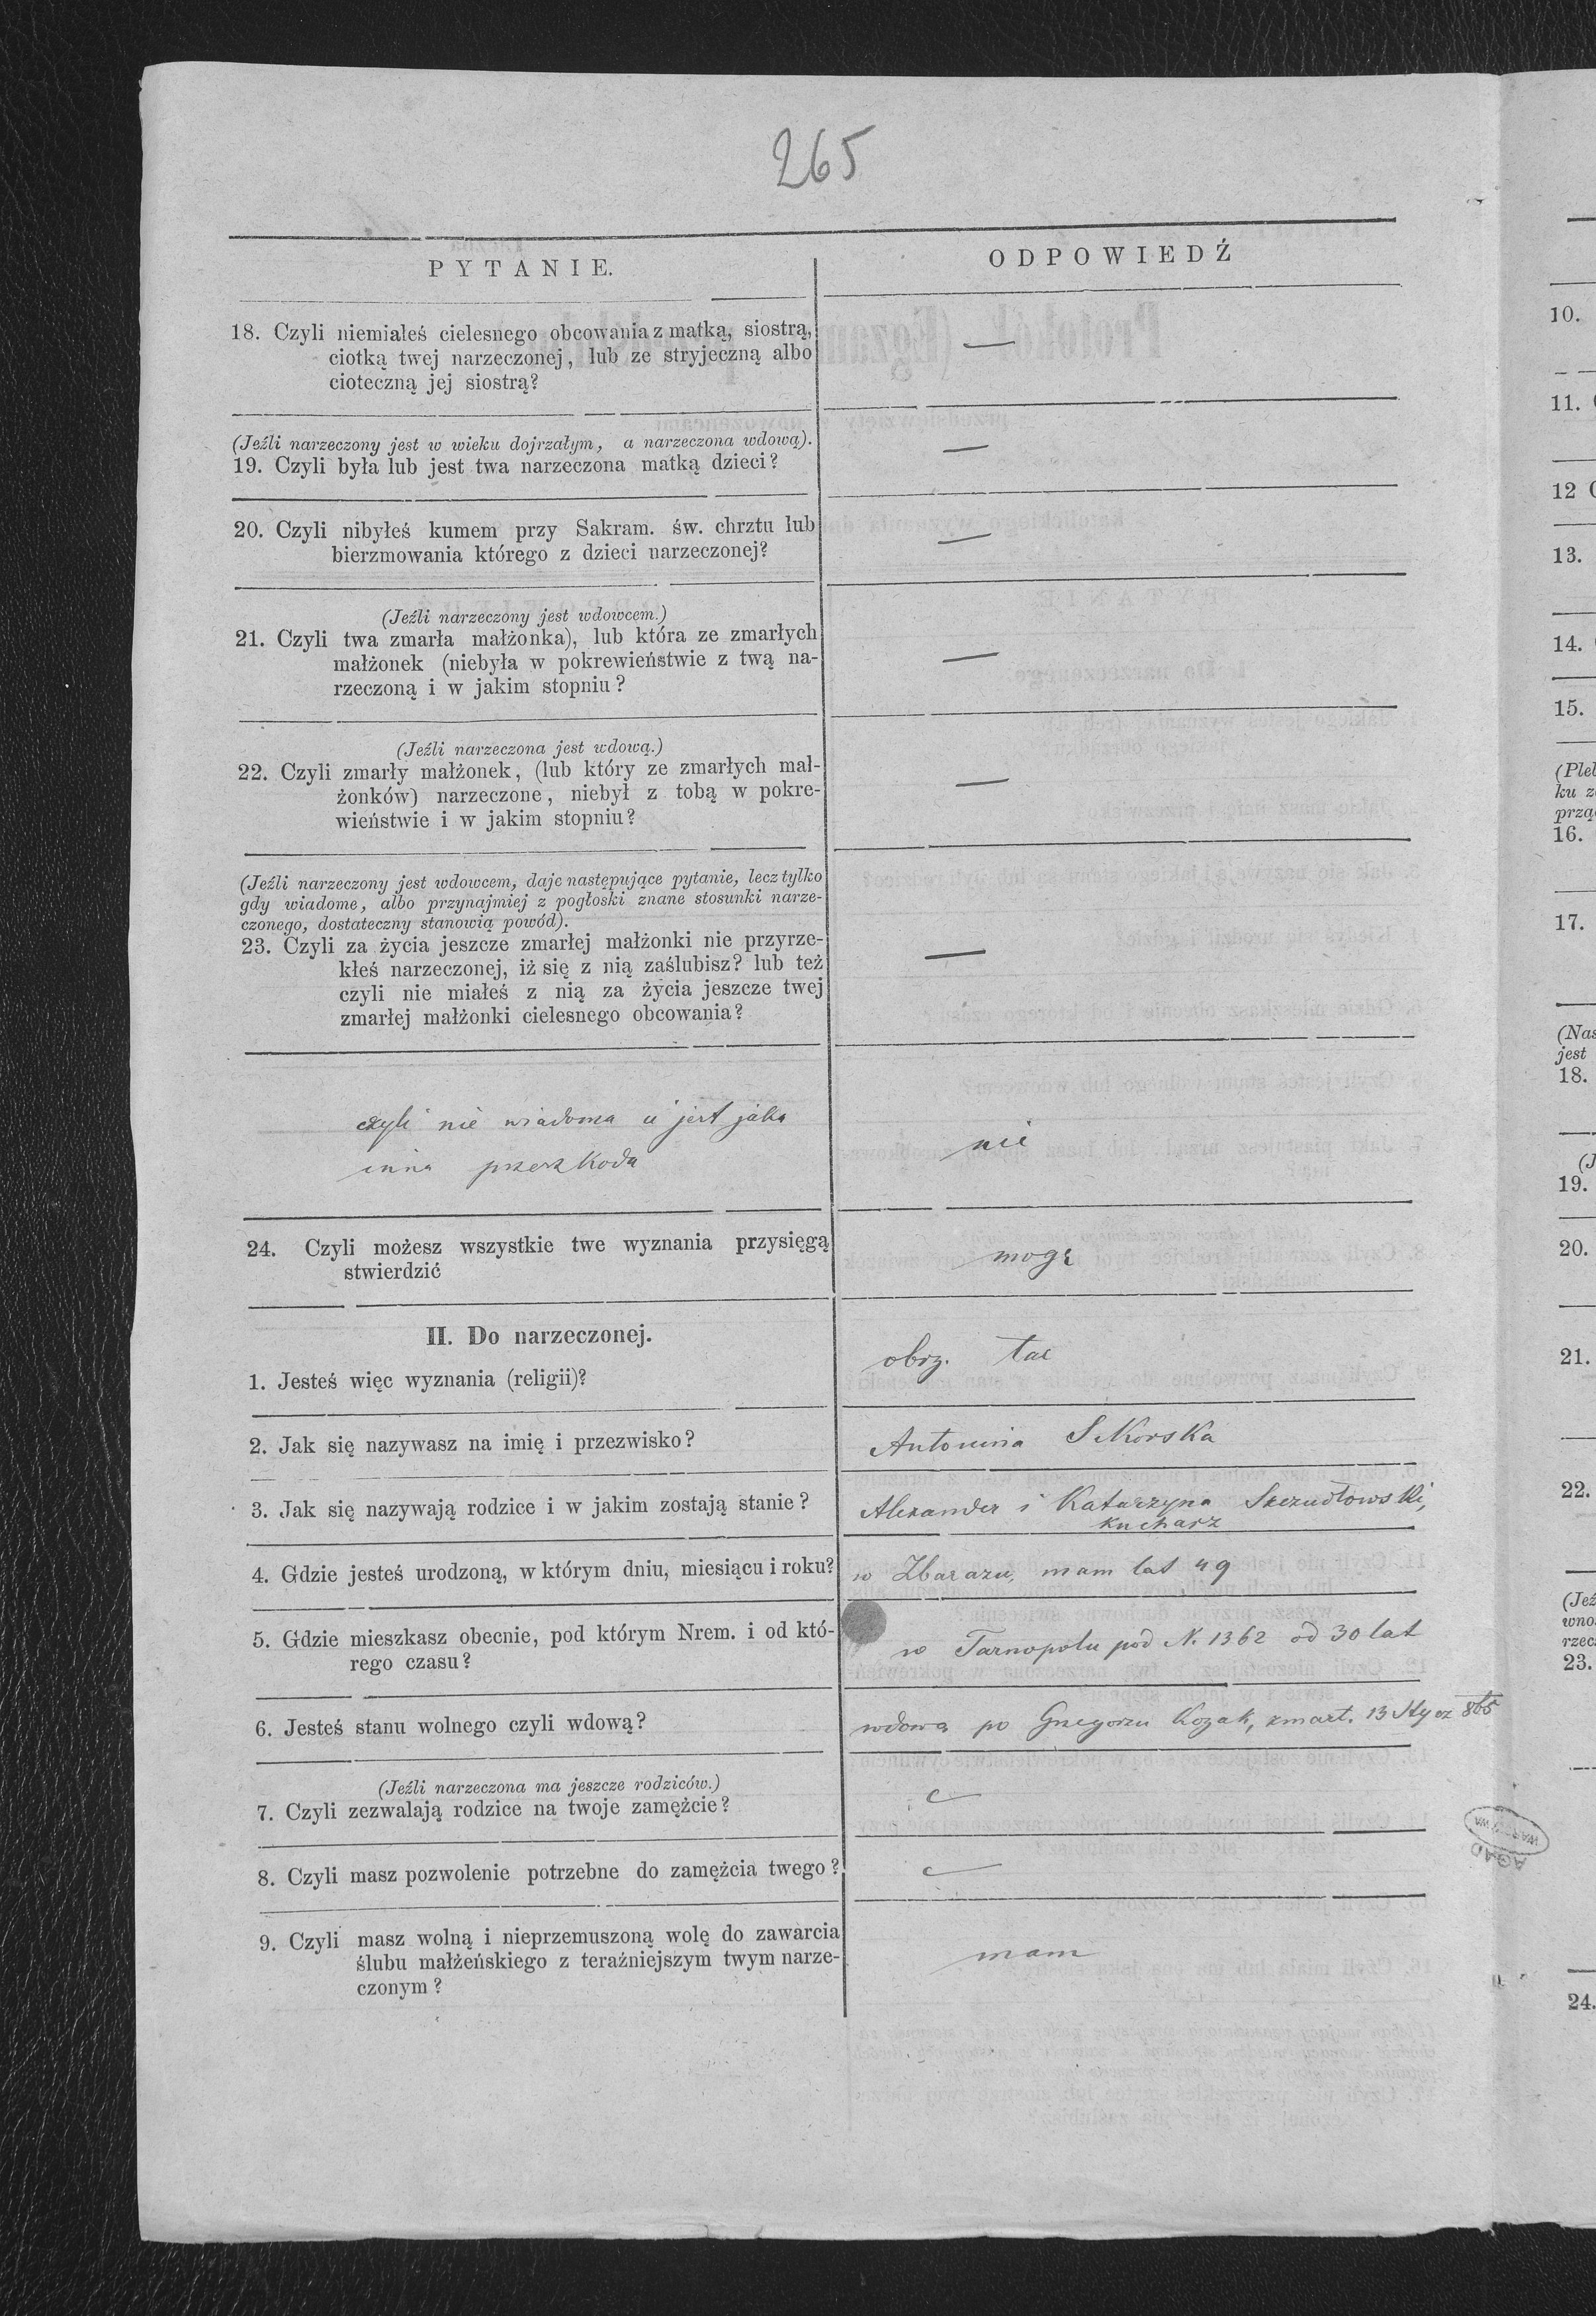 265
PYTANIE.
ODPOWIEDŹ
18. Czyli niemiałeś cielesnego obcowania z matką, siostrą,
ciotką twej narzeczonej, lub ze stryjeczną albo
cioteczną jej siostrą?
—
(Jeźli narzeczony jest w wieku dojrzałym, a narzeczona wdową).
19. Czyli była lub jest twa narzeczona matką dzieci?
—
20. Czyli nibyłeś kumem przy Sakram. św. chrztu lub
bierzmowania którego z dzieci narzeczonej?
—
(Jeźli narzeczony jest wdowcem.)
21. Czyli twa zmarła małżonka), lub która ze zmarłych
małżonek (niebyła w pokrewieństwie z twą na-
rzeczoną i w jakim stopniu?
—
(Jeźli narzeczona jest wdową.)
22. Czyli zmarły małżonek, (lub który ze zmarłych mał-
żonków) narzeczone, niebył z tobą w pokre-
wieństwie i w jakim stopniu?
—
(Jeźli narzeczony jest wdowcem, daje następujące pytanie, lecz tylko
gdy wiadome, albo przynajmiej z pogłoski znane stosunki narze-
czonego, dostateczny stanowią powód).
23. Czyli za życia jeszcze zmarłej małżonki nie przyrze-
kłeś narzeczonej, iż się z nią zaślubisz? lub też
czyli nie miałeś z nią za życia jeszcze twej
zmarłej małżonki cielesnego obcowania?
—
czyli nie wiadoma ci jest jaka
inna przeszkoda
nie
24. Czyli możesz wszystkie twe wyznania przysięgą
stwierdzić
mogę
II. Do narzeczonej.
1. Jesteś więc wyznania (religii)?
obrz. łac
2. Jak się nazywasz na imię i przezwisko?
Antonina Sikorska
3. Jak się nazywają rodzice i w jakim zostają stanie?
Alexander i Katarzyna Szczudłowski,
kucharz
4. Gdzie jesteś urodzoną, w którym dniu, miesiącu i roku?
w Zbarażu, mam lat 49
5. Gdzie mieszkasz obecnie, pod którym Nrem. i od któ-
rego czasu?
w Tarnopolu pod N. 1362 od 30 lat
6. Jesteś stanu wolnego czyli wdową?
wdowa po Gregorzu Kozak, zmarł. 13 Stycz 865
(Jeźli narzeczona ma jeszcze rodziców.)
7. Czyli zezwalają rodzice na twoje zamężcie?
8. Czyli masz pozwolenie potrzebne do zamężcia twego?
9. Czyli masz wolną i nieprzemuszoną wolę do zawarcia
ślubu małżeńskiego z teraźniejszym twym narze-
czonym?
mam
AGAD
WARSZAWA
10.
11.
12
13.
14.
15.
ku
16.
17.
jest
18.
19.
20.
21.
22.
23.
24.